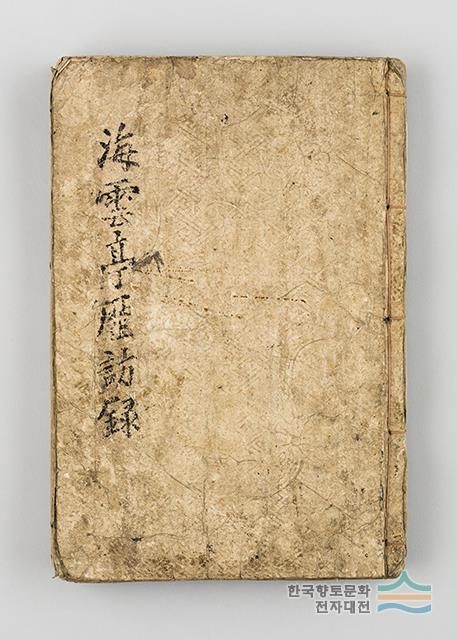 海雲亭歷訪錄
한국향토문화
전자대전